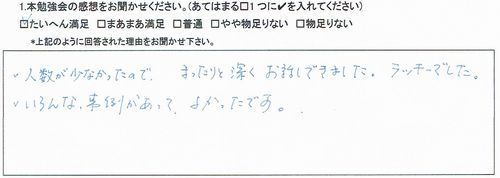 1.本勉強会の感想をお聞かせください。(あてはまる□1つに✔を入れてください)
☑たいへん満足 □まあまあ満足 □普通 □やや物足りない □物足りない
*上記のように回答された理由をお聞かせ下さい。
・人数が少なかったので、まったりと深くお話しできました。ラッキーでした。
・いろんな、事例があって、よかったです。